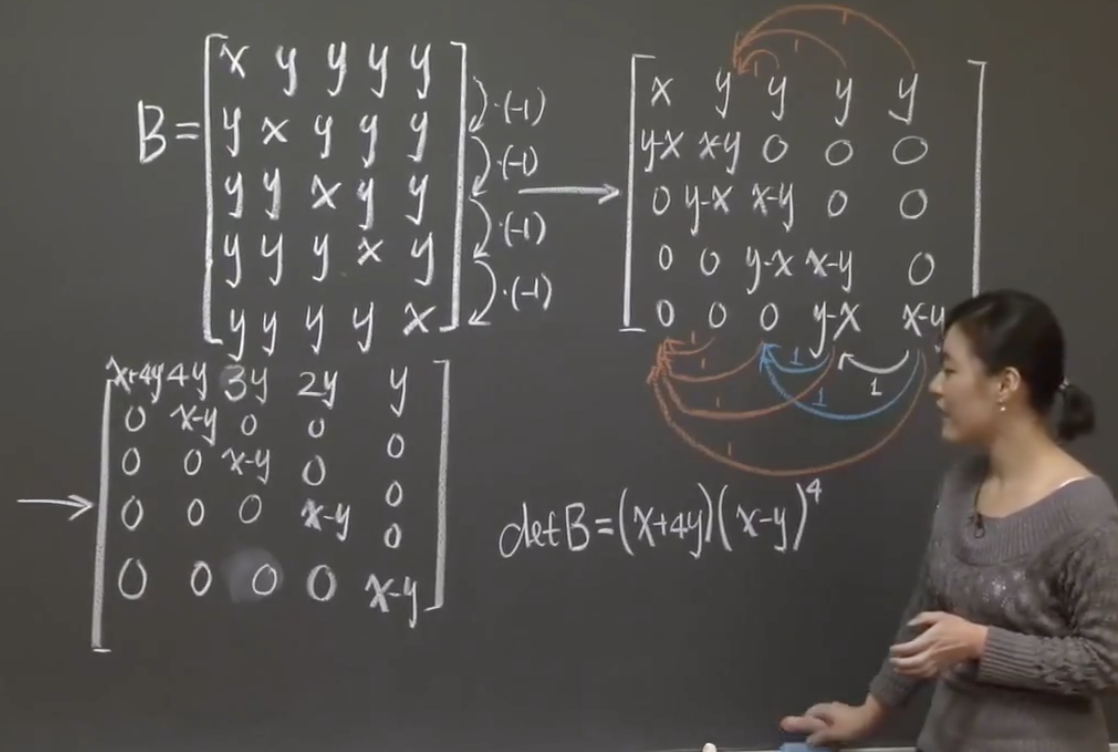 B = [ x y y y y
y x y y y
y y x y y
y y y x y
y y y y x ]
·(-1)
·(-1)
·(-1)
·(-1)
→
[ x y y y y
y-x x-y 0 0 0
0 y-x x-y 0 0
0 0 y-x x-y 0
0 0 0 y-x x-y ]
1 1 1
1 1 1
1 1 1 1
→
[ x+4y 4y 3y 2y y
0 x-y 0 0 0
0 0 x-y 0 0
0 0 0 x-y 0
0 0 0 0 x-y ]
det B = (x+4y)(x-y)⁴